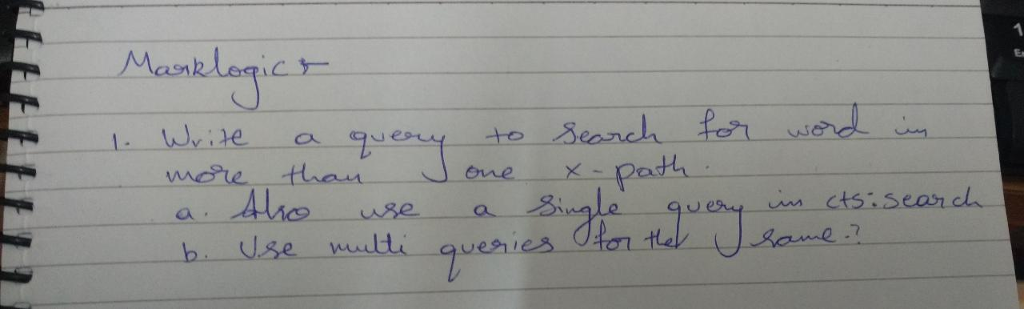 Marklogic :-
1. Write a query to search for word in
more than one x-path.
a. Also use a single query in cts:search
b. Use multi queries for the same.?